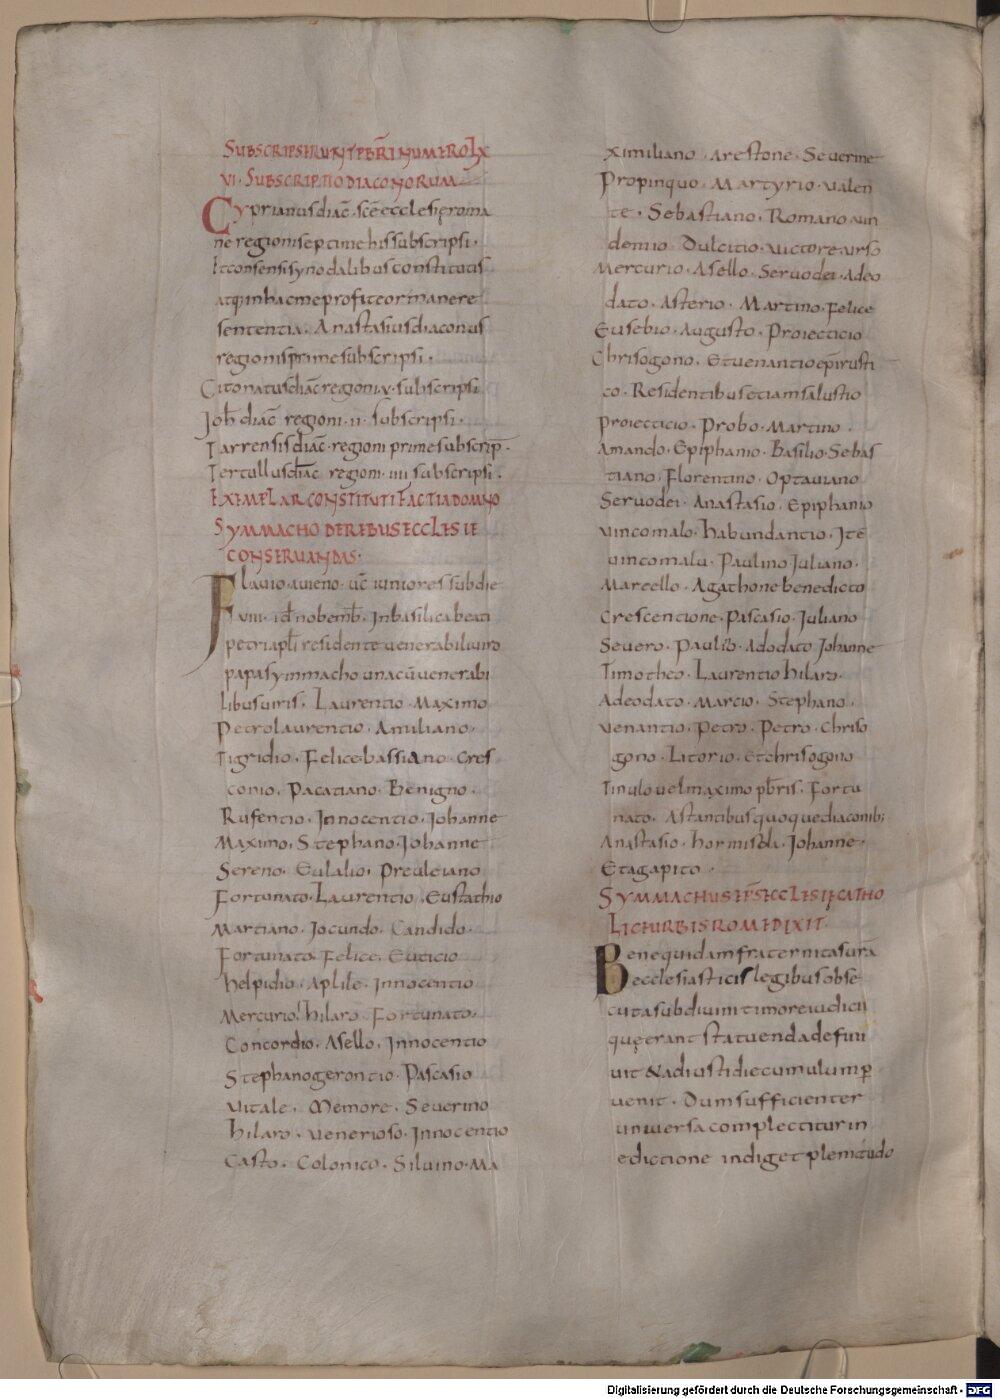 SUBSCRIPSERUNT PBRI NUMERO LX
VI · SUBSCRIPTIO DIACONORUM
Cyprianus diac̄ · scē ecclesię roma
ne regionis septime his subscripsi ·
Et consensi synodalibus constitutis
atq; in hac me profiteor manere
sententia · Anastasius diaconus
regionis prime subscripsi ·
Citonatus diac̄ regioni v · subscripsi
Joh̄ diac̄ regioni · ii · subscripsi ·
Tarrensis diac̄ · regioni prime subscrip̄ ·
Tertullus diac̄ regioni · iiii subscripsi ·
EXEMPLAR CONSTITUTI FACTI A DOMNO
SYMMACHO DE REBUS ECCLESIE
CONSERVANDAS ·
Flavio avieno · uc̄ iuniore s sub die
viii · id̄ nobemb̄ · In basilica beati
petri apłi residente venerabili viro
papa symmacho una cū venerabi
libus viris · Laurentio · Maximo
Petro laurentio · Amiliano ·
Tigridio · Felice · bassiano · Cres
conio · Pacatiano · Benigno ·
Rufentio · Innocentio · Johanne
Maximo · Stephano · Johanne
Sereno · Eulalio · Preuleiano
Fortunato · Laurentio · Eustathio
Martiano · Jocundo · Candido ·
Fortunato · Felice · Euticio
helpidio · Aplile · Innocentio
Mercurio · hilaro · Fortunato ·
Concordio · Asello · Innocentio
Stephano gerontio · Pascasio
Vitale · Memore · Severino
hilaro · Venerioso · Innocentio
Casto · Colonico · Silvino · Ma
ximiliano · Arestone · Severine
Propinquo · Martyrio · Valen
te · Sebastiano · Romano vin
demio · Dulcitio · Victore · urso
Mercurio · Asello · Servodei · Adeo
dato · Asterio · Martino · Felice
Eusebio · Augusto · Proiecticio
Chrisogono · Et venantio ep̄i rusti
co · Residentibus etiam salustio
proiecticio · Probo · Martino ·
Amando · Epiphanio · Basilio · Sebas
tiano · Florentino · Optaviano
Servodei · Anastasio · Epiphanio
vincomalo · habundantio · Itē
vincomalu · Paulino Juliano ·
Marcello · Agathone benedicto
Crescentione · Pascasio · Juliano
Severo · Paulino · Adodato Johanne
Timotheo · Laurentio hilaro ·
Adeodato · Marcio · Stephano ·
venantio · Petro · Petro · Chriso
gono · Litorio · Et chrisogono
Tinulo vel maximo pb̄ris · Fortu
nato · Astantibus quoque diaconib;
Anastasio · hormisda · Johanne ·
Et agapito ·
SYMMACHUS EP̄S ECCLESIĘ CATHO
LICE URBIS ROME DIXIT ·
Bene quidam fraternitas urā
ecclesiasticis legibus obse
cuta sub divini timore iudicii
quę erant statuenda defini
uit & ad iusti die cumulum p̱
venit · Dum sufficienter
universa complectitur in
edictione indiget plenitudo